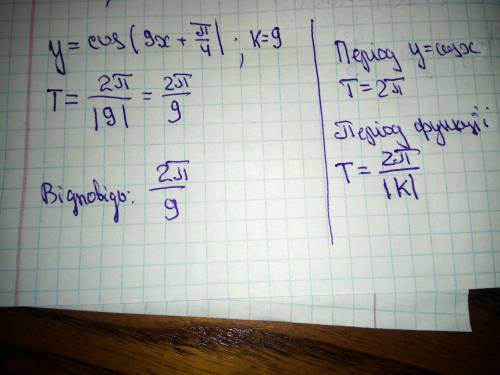 y = cos(9x + π/4|; k=9
T = 2π/|9| = 2π/9
Відповідь: 2π/9
Період y=cosx
T=2π
Період функції
T = 2π/|k|